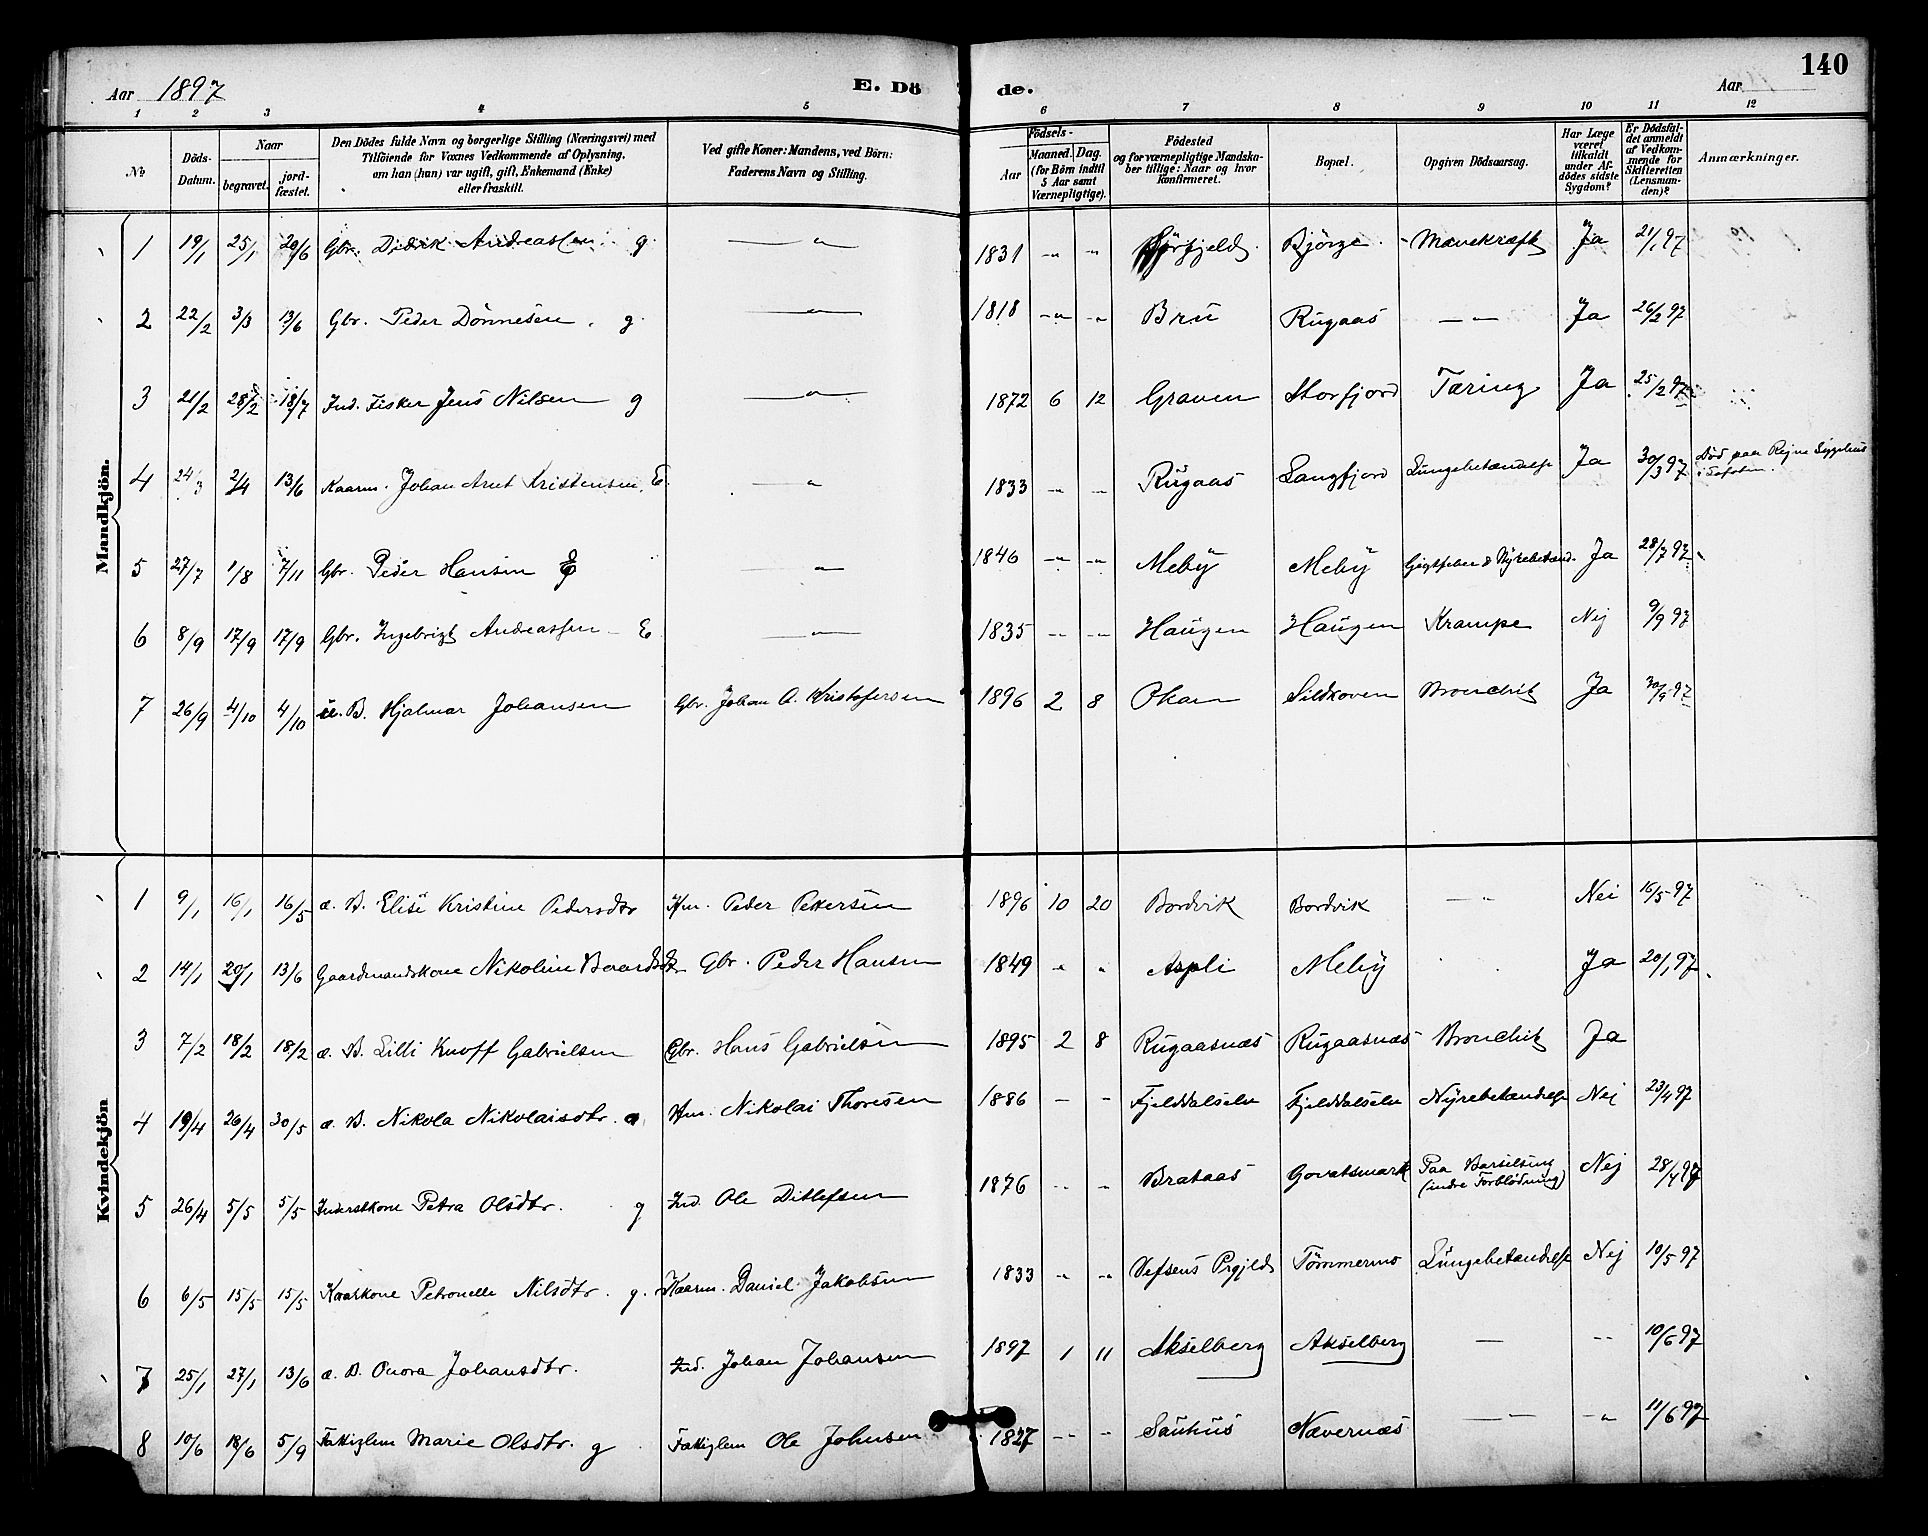 140
Aar 1897 E. Dö de. Aar
1 2 3 4 5 6 7 8 9 10 11 12
No
Döds-Datum.
Naar
begravet. jord-fæstet.
Den Dödes fulde Navn og borgerlige Stilling (Næringsvei) med
Tilföiende for Voxnes Vedkommende af Oplysning,
om han (hun) var ugift, gift, Enkemand (Enke)
eller fraskilt.
Ved gifte Koner: Mandens, ved Börn:
Faderens Navn og Stilling.
Födsels-
Aar Maaned. Dag.
(for Börn indtil
5 Aar samt
Værnepligtige).
Födested
og for værnepligtige Mandska-
ber tillige: Naar og hvor
konfirmeret.
Bopæl.
Opgiven Dödsaarsag.
Har Læge
været
tilkaldt
under Af-
dödes sidste
Sygdom?
Er Dödsfal-
det anmeldt
af Vedkom-
mende for
Skifteretten
(Lensman-
den)?
Anmærkninger.
Mandkjön.
1 19/1 25/1 20/6 Gbr. Didrik Andreassen. g. — " — 1831 -"- -"- Bjørge. Mavekræft Ja 21/1 97
2 22/2 3/3 13/6 Gbr. Peder Dönnesen. g — " — 1818 -"- -"- Bru Rugaas — " — Ja 26/2 97
3 21/2 28/2 18/7 Ind. Fisker Jens Nilsen g — " — 1872 6 12 Graven Storfjord Tæring Ja 25/2 97
4 24/3 2/4 13/6 Kaarm. Johan Arnt Kristensen. E. — " — 1833 -"- -"- Rugaas Langfjord Lungebetændelse Ja 30/3 97 Död paa Rejne Sygehus
i Lofoten.
5 27/7 1/8 7/11 Gbr. Peder Hansen E — " — 1846 -"- -"- Meby Meby Gigtfeber & Nyrebetænd. Ja 28/7 97
6 8/9 17/9 17/9 Gbr. Ingebrigt Andreassen - E. — " — 1835 -"- -"- Haugen Haugen Krampe Nej 9/9 97
7 26/9 4/10 4/10 u. B. Hjalmar Johansen Gbr. Johan A. Kristofersen 1896 2 8 Okan Sildhoven Bronchit Ja 30/9 97
Kvindekjön
1 9/1 16/1 16/5 æ. B. Elise Kristine Pedersdtr Hm. Peder Pettersen 1896 10 20 Bordvik Bordvik — " Nei 16/5 97
2 14/1 20/1 13/6 Gaardmandskone Nikoline Gbr. Peder Hansen 1849 " " Aspli Meby Ja 20/1 97
3 7/2 18/2 18/2 æ. B. Lilli Knoff Gabrielsen Gbr. Hans Gabrielsen 1895 2 8 Rugaasnæs Rugaasnæs Bronchit Ja
4 19/4 26/4 30/5 æ. B. Nikola Nikolaisdtr. Hm. Nikolai Thoresen 1886 - - Fjelddalselv Fjelddalselv Nyrebetændelse Nej 23/4 97
5 26/4 5/5 5/5 Inderstkone Petra Olsdtr. g Ind. Ole Ditlefsen 1876 -"- " Brataas Govatsmark Paa Barselseng
(indre Forblödning) Nej 28/4 97
6 6/5 15/5 15/5 Kaarkone Petronelle Nilsdtr. g. Kaarm. Daniel Jakobsen 1833 " -"- Vefsens Prgjeld Tömmermo Lungebetændelse Nej 10/5 97
7 25/1 27/1 13/6 æ. B. Onora Johansdtr. Ind. Johan Johansen 1897 1 11 Akselberg Akselberg — -"- 10/6 97
8 10/6 18/6 5/9 Fattiglem Marie Olsdtr. g Fattiglem Ole Johnsen 1827 -"- " Sauhus Nævernæs — " — -"- 11/6 97